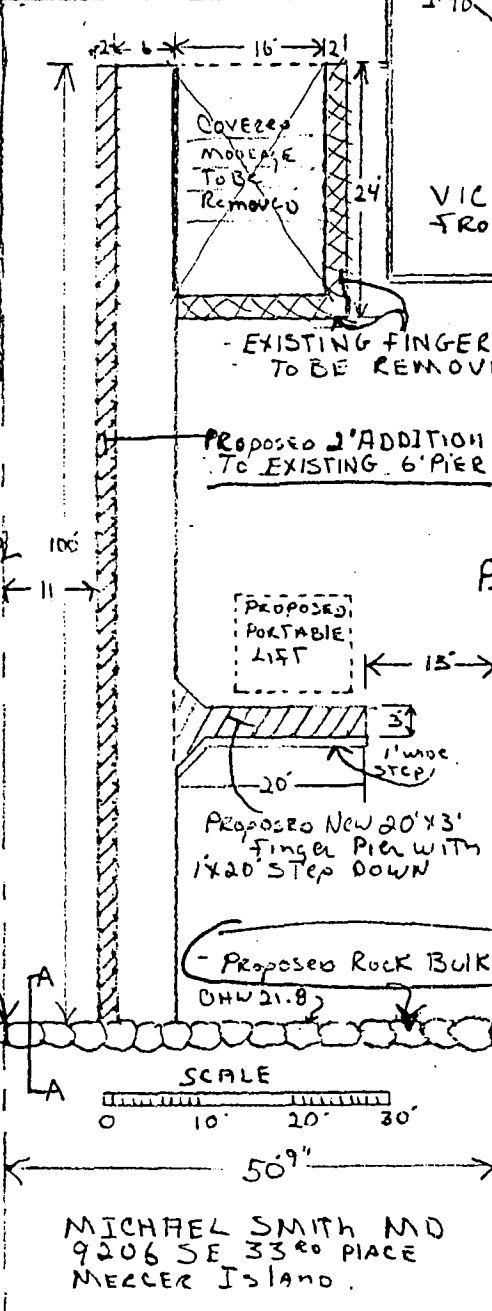 2' 6 16' 2
COVERED
MOORAGE
TO BE
REMOVED
24'
VIC
FRO
- EXISTING FINGER
TO BE REMOV
PROPOSED 2' ADDITION
TO EXISTING 6' PIER
100'
11
PROPOSED
PORTABLE
LIFT
13'
3'
1' WIDE
STEP
20'
PROPOSED NEW 20' X 3'
FINGER PIER WITH
1' X 20' STEP DOWN
- PROPOSED ROCK BULK
OHW 21.8
A
A
SCALE
0 10' 20' 30'
50'9"
MICHAEL SMITH MD
9206 SE 33RD PLACE
MERCER ISLAND.